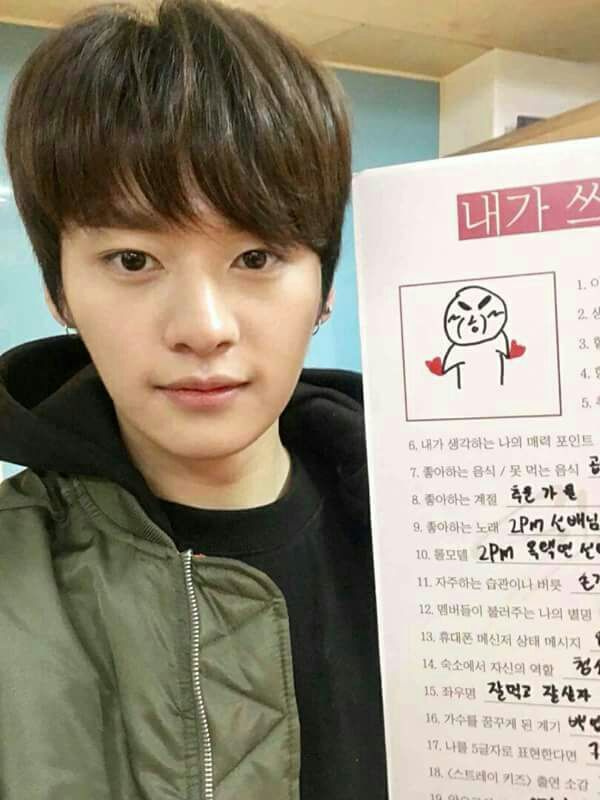 내가 쓰
1.
2.
3.
4.
5.
6. 내가 생각하는 나의 매력 포인트
7. 좋아하는 음식 / 못 먹는 음식
8. 좋아하는 계절 추운 가을
9. 좋아하는 노래 2PM 선배님
10. 롤모델 2PM 옥택연 선
11. 자주하는 습관이나 버릇
12. 멤버들이 불러주는 나의 별명
13. 휴대폰 메신저 상태 메시지
14. 숙소에서 자신의 역할 청소
15. 좌우명 잘먹고 잘살자
16. 가수를 꿈꾸게 된 계기
17. 나를 5글자로 표현한다면
18. 〈스트레이 키즈〉 출연 소감
19.